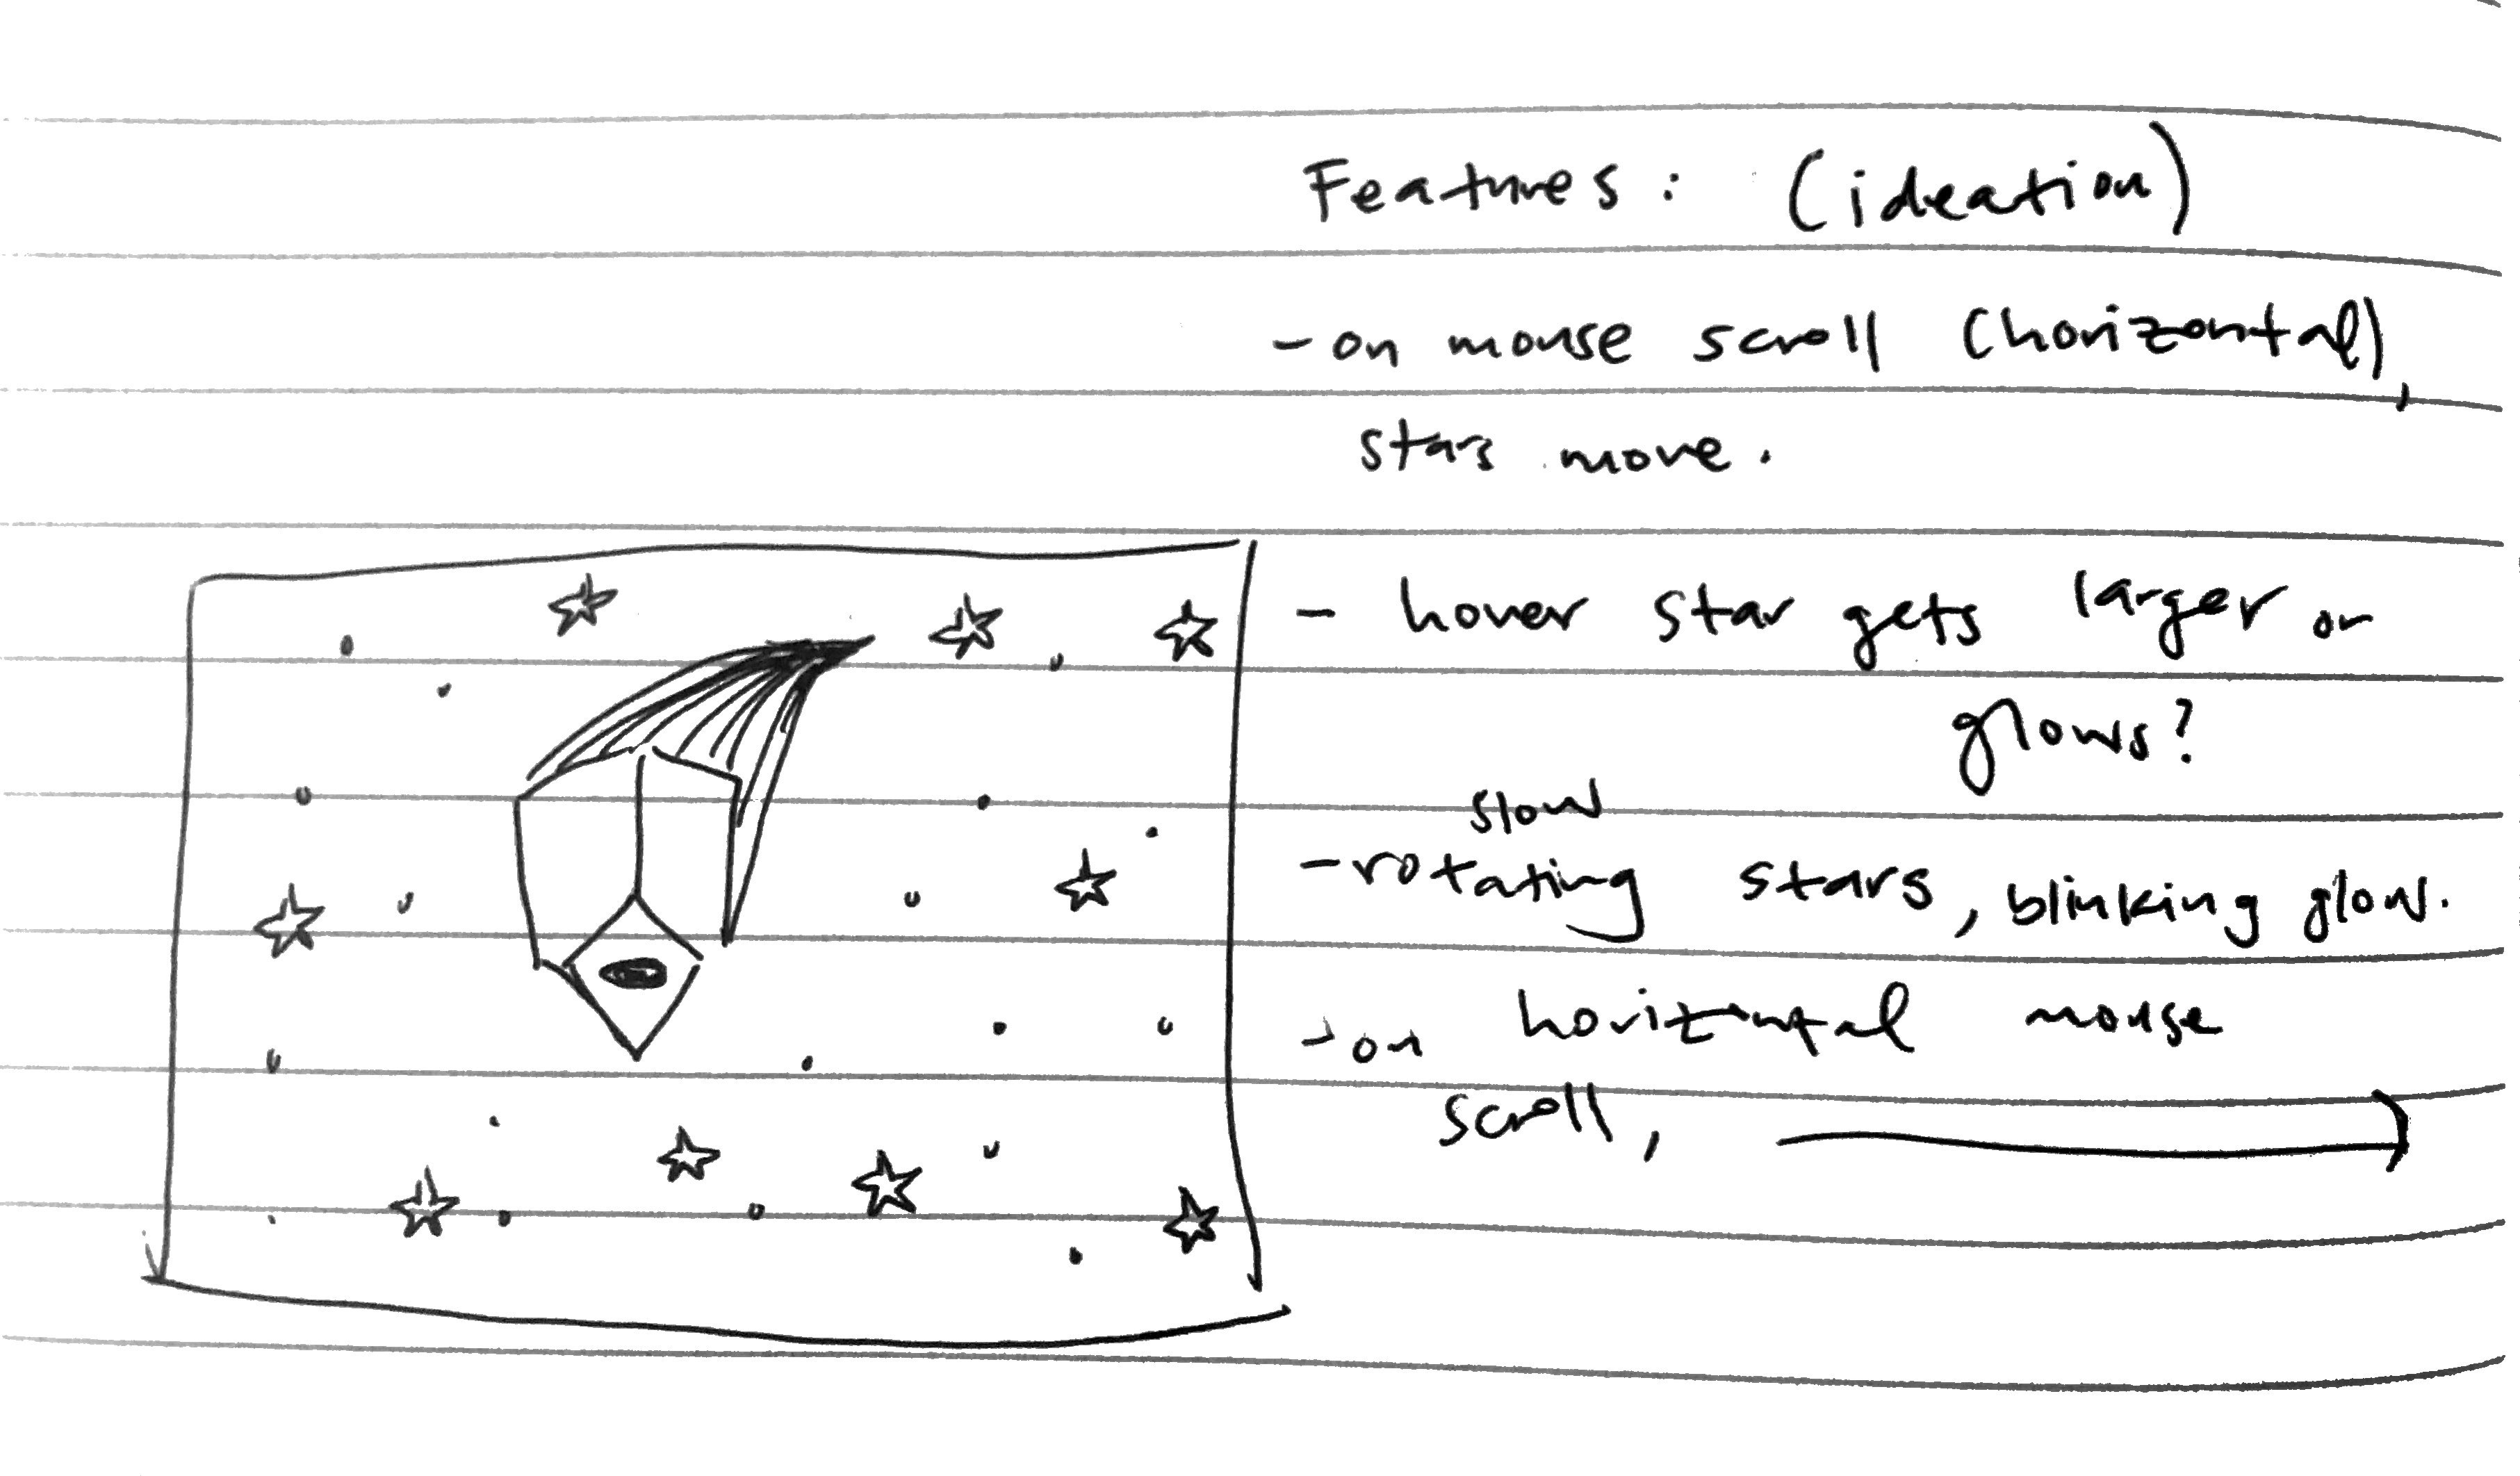 Features: (ideation)
- on mouse scroll (horizontal),
stars move.
- hover star gets larger or
glows?
slow
- rotating stars, blinking glow.
- on horizontal mouse
scroll,